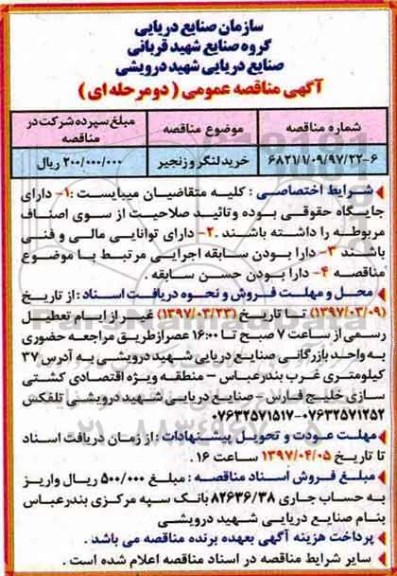 سازمان صنایع دریایی
گروه صنایع شهید قربانی
صنایع دریایی شهید درویشی
آگهی مناقصه عمومی ( دو مرحله ای )
شماره مناقصه
موضوع مناقصه
مبلغ سپرده شرکت در مناقصه
۶۸۲۱/۱/۰۹/۹۷/۲۲-۶
خرید لنگر و زنجیر
۲۰۰/۰۰۰/۰۰۰ ریال
شرایط اختصاصی : کلیه متقاضیان میبایست :۱- دارای
جایگاه حقوقی بوده و تائید صلاحیت از سوی اصناف
مربوطه را داشته باشند .۲- دارای توانایی مالی و فنی
باشند ۳- دارا بودن سابقه اجرایی مرتبط با موضوع
مناقصه ۴- دارا بودن حسن سابقه .
محل و مهلت فروش و نحوه دریافت اسناد : از تاریخ
(۱۳۹۷/۰۳/۰۹) تا تاریخ (۱۳۹۷/۰۳/۲۳) غیر از ایام تعطیل
رسمی از ساعت ۷ صبح تا ۱۶:۰۰ عصر از طریق مراجعه حضوری
به واحد بازرگانی صنایع دریایی شهید درویشی به آدرس ۳۷
کیلومتری غرب بندرعباس – منطقه ویژه اقتصادی کشتی
سازی خلیج فارس - صنایع دریایی شهید درویشی تلفکس
۰۷۶۳۲۵۷۱۵۱۷-۰۷۶۳۲۵۷۱۲۵۲
مهلت عودت و تحویل پیشنهادات : از زمان دریافت اسناد
تا تاریخ ۱۳۹۷/۰۴/۰۵ ساعت ۱۶ .
مبلغ فروش اسناد مناقصه : مبلغ ۵۰۰/۰۰۰ ریال واریز
به حساب جاری ۸۲۶۳۶/۳۸ بانک سپه مرکزی بندرعباس
بنام صنایع دریایی شهید درویشی
پرداخت هزینه آگهی بعهده برنده مناقصه می باشد .
سایر شرایط مناقصه در اسناد مناقصه اعلام شده است .